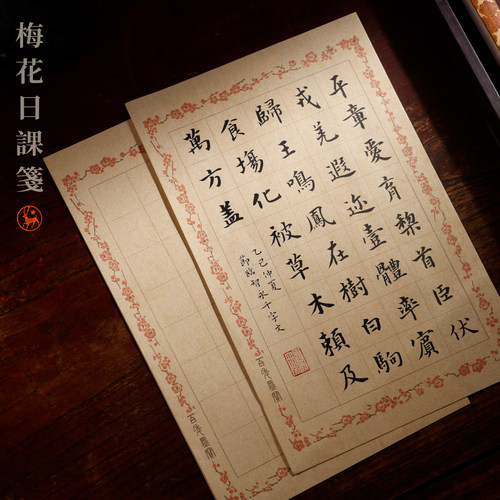 梅花日課箋
平章愛育黎首臣伏
戎羌遐迩壹體率賓
歸王鳴鳳在樹白駒
食塲化被草木賴及
萬方蓋
乙巳仲夏
節臨智永千字文